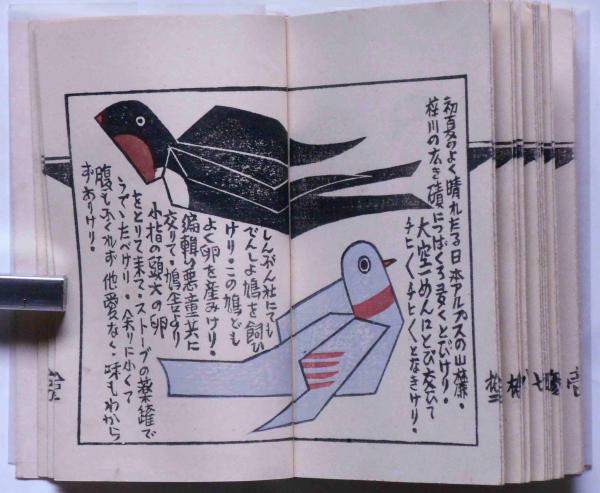 初夏のよく晴れたる日本アルプスの山麓。
梓川の広き磧につばくろ多くとびけり。
大空一めんにとび交ひて
チヒ〱チヒ〱となきけり。
しんぶん社にても
でんしよ鳩を飼ひ
けり。この鳩ども
よく卵を産みけり。
編輯の悪童共に
交りて。鳩舎より
小指の頭大の卵
をとりて来て。ストーブの薬罐で
うでゝたべけり。余りに小くて
腹もふくれず他愛なく。味もわから
ずありけり。
壱
七